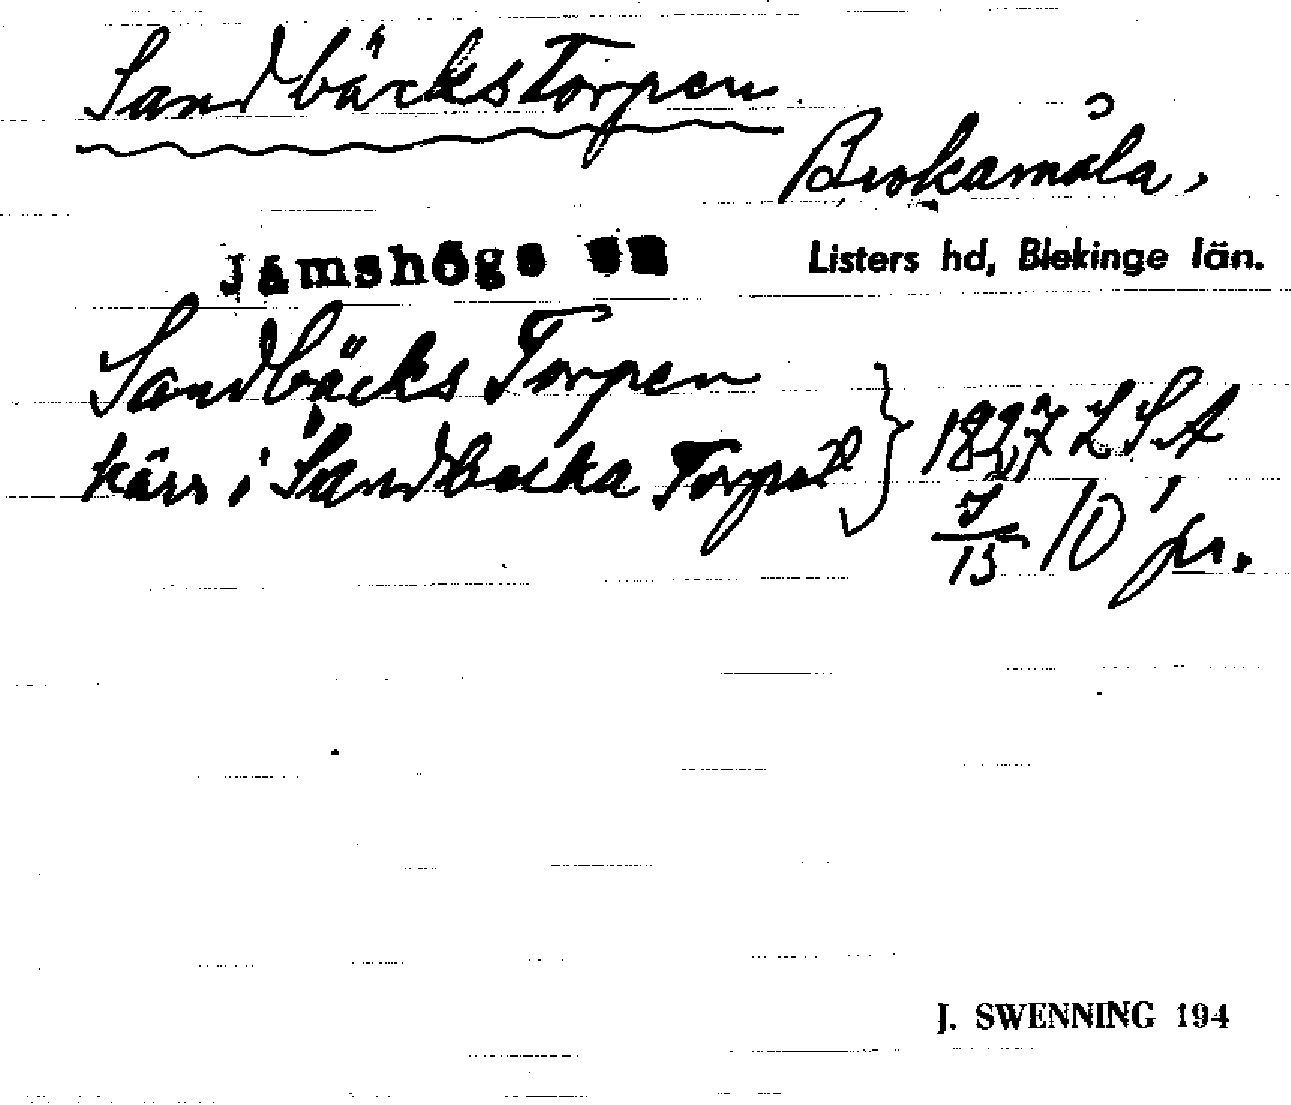 Sandbäckstorpen
Brokamåla,
Jämshögs sn Listers hd, Blekinge län.
Sandbäcks Torpen
kärr i Sandbecka Torpet } 1827 LSA
7/15 10 jr.
J. SWENNING 194